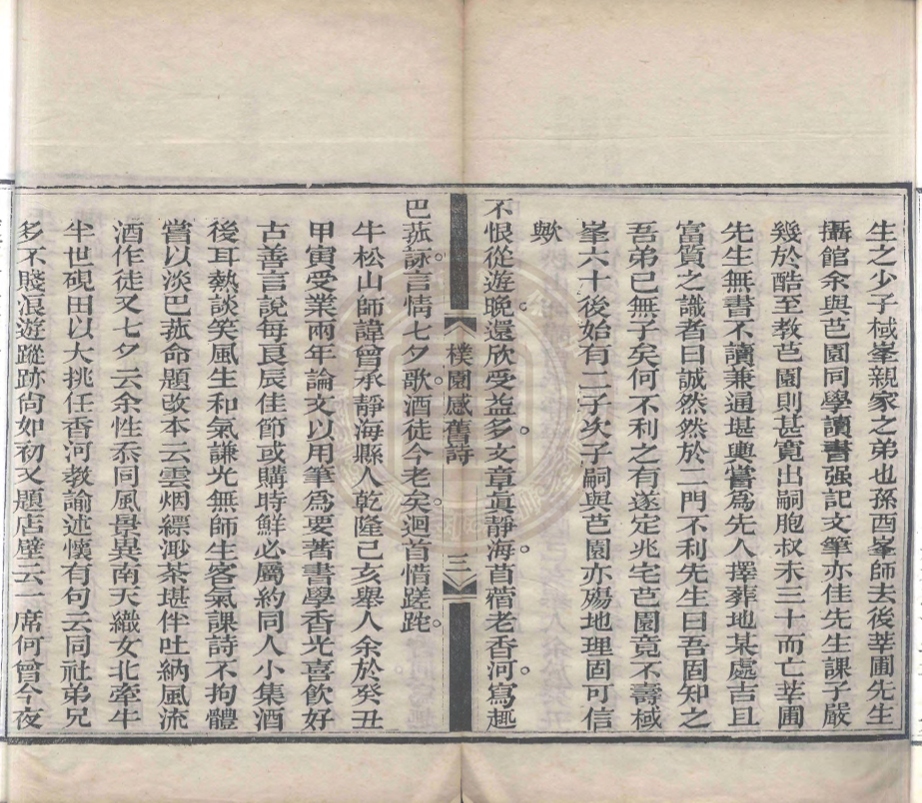 生之少子棫峯親家之弟也孫西峯師去後莘圃先生
攝館余與芭園同學讀書强記文筆亦佳先生課子嚴
幾於酷至教芭園則甚寬出嗣胞叔未三十而亡莘圃
先生無書不讀兼通堪輿嘗爲先人擇葬地某處吉且
富貴之識者曰誠然然於二門不利先生曰吾固知之
吾弟已無子矣何不利之有遂定兆宅芭園竟不壽棫
峯六十後始有二子次子嗣與芭園亦殤地理固可信
歟
不恨從遊晚還欣受益多文章眞靜海苜蓿老香河寫趣
樸園感舊詩
三
巴菰詠言情七夕歌酒徒今老矣迴首惜蹉跎
牛松山師諱曾承靜海縣人乾隆己亥舉人余於癸丑
甲寅受業兩年論文以用筆爲要著書學香光喜飲好
古善言說每良辰佳節或購時鮮必屬約同人小集酒
後耳熱談笑風生和氣謙光無師生客氣課詩不拘體
嘗以淡巴菰命題改本云雲烟縹渺茶堪伴吐納風流
酒作徒又七夕云余性忝同風景異南天織女北牽牛
半世硯田以大挑任香河教諭述懷有句云同社弟兄
多不賤浪遊蹤跡尙如初又題店壁云一席何曾今夜